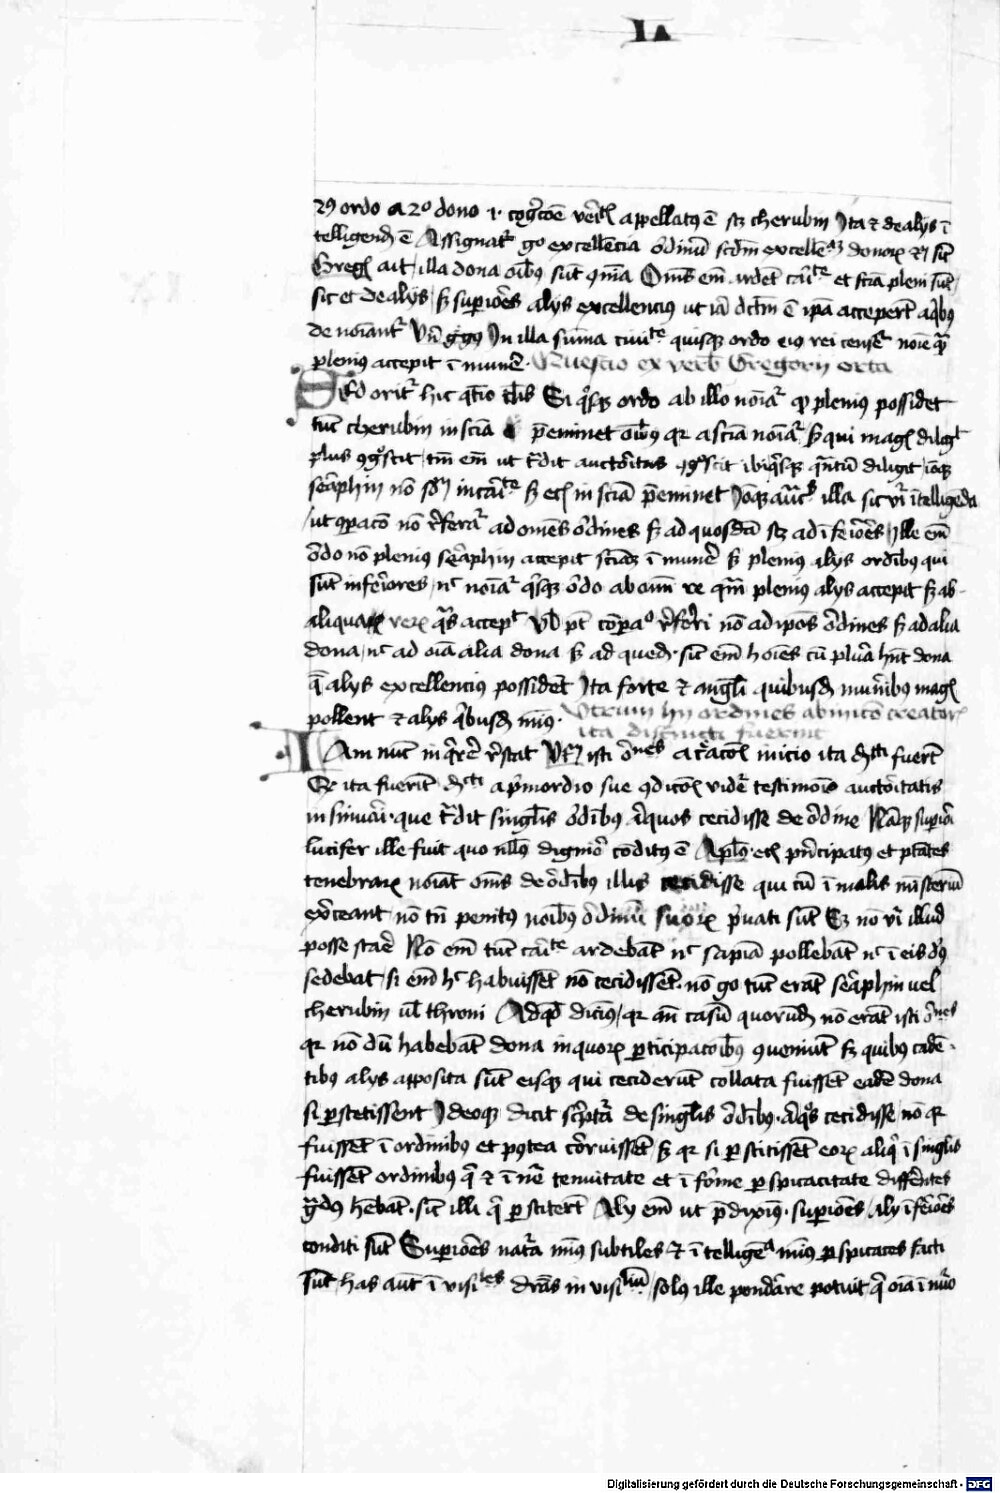 IX
2us ordo a 2o dono i. cognicione veritatis appellatus e scz cherubin Ita et de alijs i
telligend e Assignatr go excellencia ordinu scdm excellencia donorum et sicut
Greg ait illa dona oibus sut comunia Oms em ardet caritate et scia pleni sut
sic et de alijs sed superiores alijs excellencius ut ia dctm e ipa acceperut a quibus
de noiantur Un gregorius In illa summa ciuitate quisque ordo eius rei censetur noie qua
plenius accepit i munere. Questio ex verbis Gregorii orta
Sed oritur hic questio talis Si quisque ordo ab illo noiatur quod plenius possidet
tuc cherubin in scia preeminet omnibus qr a scia noiatur sed qui magis diligit
plus cognoscit, tm em ut tradit auctoritas cognoscit ibi quisque quantum diligit, itaque
seraphin no solum in caritate sed etiam in scia preeminet Ideoque auctoritas illa sic videtur itelligeda
ut comparacio no referatur ad omnes ordines sed ad quosda scz ad iferiores, ille em
ordo no plenius seraphin accepit sciam i munere sed plenius alijs ordibus qui
sut inferiores, nec noiatur quisque ordo ab omni re quam plenius alijs accepit sed ab
aliqua rerum quas accepit Vel potest comparatio referri no ad ipos ordines sed ad alia
dona, nec ad oia alia dona sed ad quedam. sicut em hoies cu plura hnt dona
que alijs excellencius possidet Ita forte et angeli quibusdam muneribus magis
pollent et alijs quibusdam minus. Utrum hii ordines ab inicio creatorum
ita distincti fuerint
Iam nuc inquirere restat Utrum isti ordines a creacionis inicio ita distincti fuerit
Et ita fuerit distincti a primordio sue condicionis videtur testimonio auctoritatis
insinuari. que tradit singulis ordibus aliquos cecidisse de ordine Namque superiori
lucifer ille fuit quo nullus dignior coditus e Aplus etiam principatus et ptates
tenebrarum noiat oms de ordibus illis cecidisse qui cu i malis misterium
exerceant no tn penitus noibus ordinu suorum priuati sut Sed no videtur illud
posse stare No em tuc caritate ardebat nec sapia pollebat nec i eis deus
sedebat, si em hec habuisset no cecidisset. no go tuc erat seraphin vel
cherubin uel throni Ad quod dicimus, qr an casum quorundam no erat isti ordines
qr no du habebat dona in quorum participacoibus conueniut sed quibus caden-
tibus alijs apposita sut eisque qui ceciderut collata fuisset eade dona
si perstetissent Ideoque dicit scriptura de singulis ordibus. aliquos cecidisse, no qr
fuisset i ordinibus et postea corruisset sed qr si perstitisset eorum aliqui i singulis
fuisset ordinibus que et i nature tenuitate et i forme perspicacitate differetes
gradus hebat. sicut illi qui perstiterut Alij em ut prediximus. superiores, alij iferiores
conditi sut Superiores natura minus subtiles et itelligencia minus perspicaces facti
sut, has aut i visibiles dras invisibilium, solus ille ponderare potuit qui oia i numero
Digitalisierung gefördert durch die Deutsche Forschungsgemeinschaft - DFG